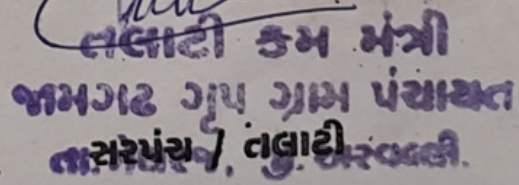 તલાટી કમ મંત્રી
જામગઢ ગૃપ ગ્રામ પંચાયત
સરપંચ / તલાટી